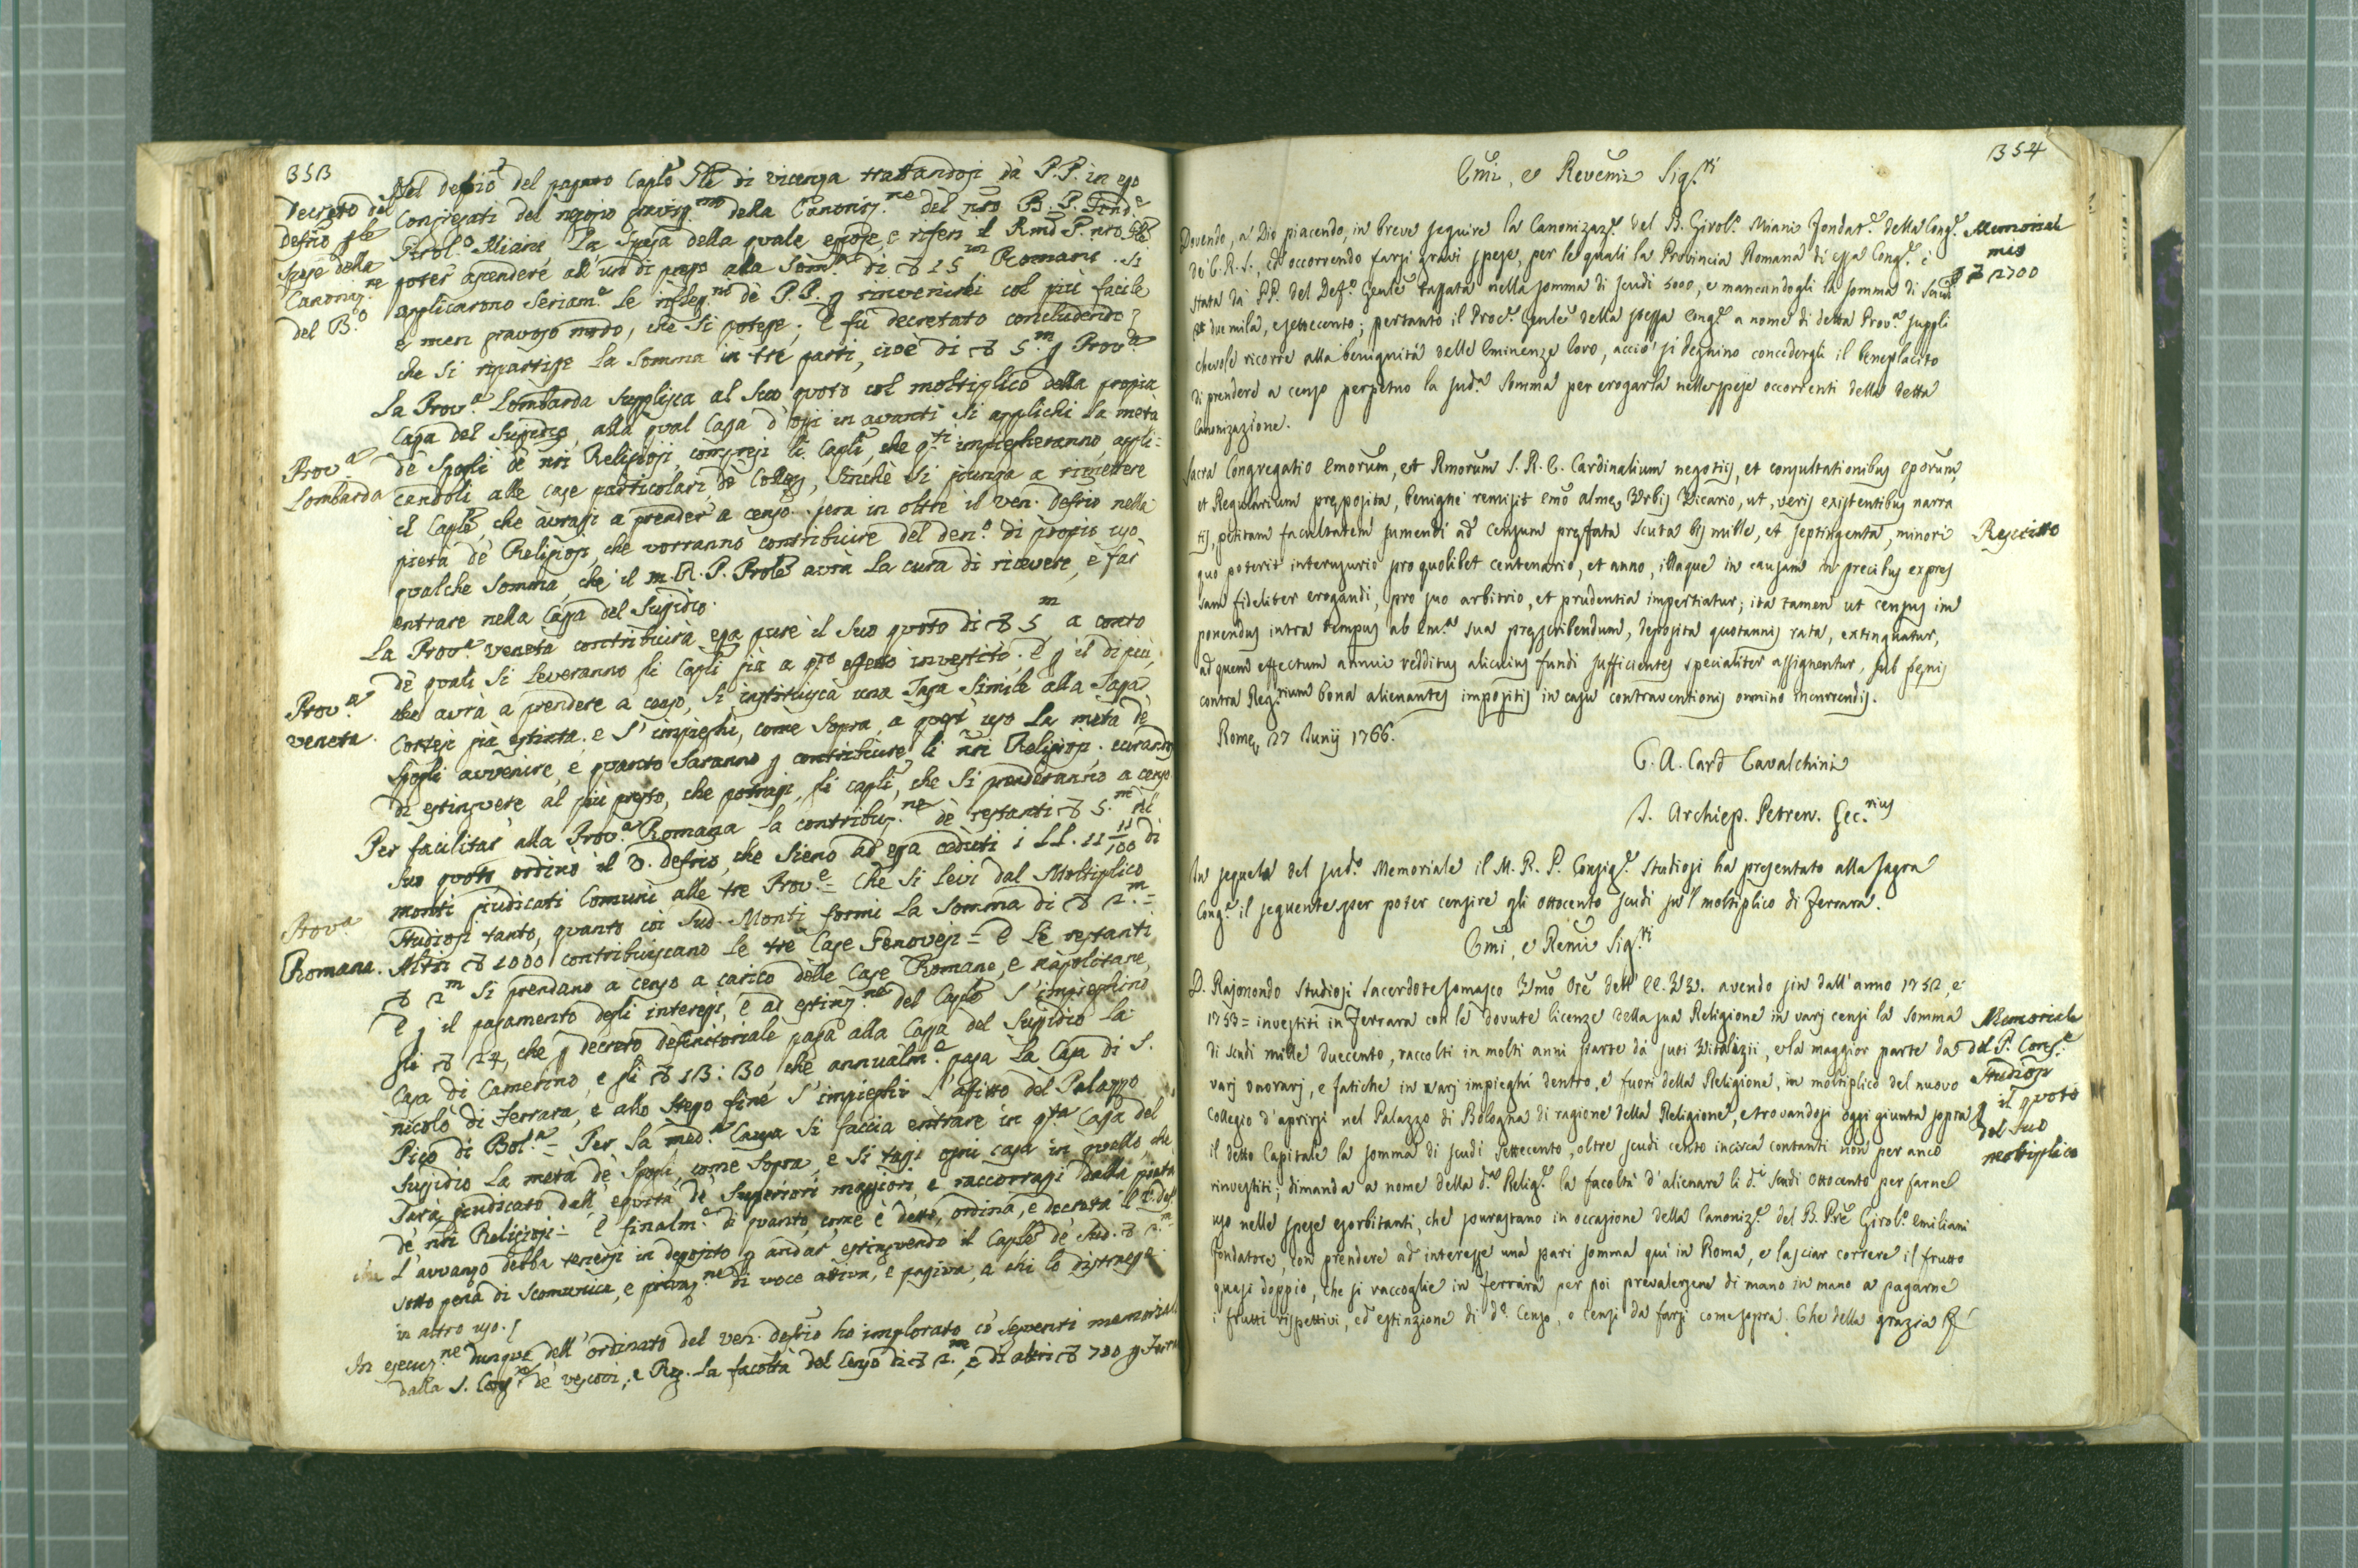 353
Decreto del
Defrio p le
Spese della
Canoniz.ne
del B.o
Nel defrio del passato Caplo Gle di vicenza trattandosi dà P.P. in esso
Congregati del negozio graviss.mo della Canoniz.ne del nro B. P. Fond.e
Girol.o Miani La Spesa della quale espose, e riferì il Rmo P. nro Gle
poter ascendere all'uso di presso alla Som.a di ∇ 15 m Romani. Si
applicarono Seriam.e le rifless.ni dè P.P. p rinvenirsi col più facile
e men gravoso modo, che si potesse; e fù decretato concludendo
che si ripartisse La Somma in trè parti, cioè di ∇ 5.m p Prov.a
Prov.a
Lombarda
La Prov.a Lombarda Supplisca al Suo quoto col moltiplico della propia
Cassa del Sussidio, alla qual Cassa d'oggi in avanti si applichi La metà
dè Spogli de nri Religiosi, compresi li Capli, che q.ti impiegheranno, appli=
candoli alle case particolari, dè Collegj, Sinchè si giunga a rimettere
il Caple, che àvrassi a prender a censo. Spera in oltre il ven. Defrio nella
pietà dè Religiosi, che vorranno contribuire del den.o di propio uso
qualche Somma, che il m. R. P. Prole avrà La cura di ricevere, è far
entrare nella Cassa del Sussidio.
Prov.a
veneta.
La Prov.a veneta contribuirà essa pure il Suo quoto di ∇ 5 m a conto
dè quali Si Leveranno gli Capli già a q.to effetto investito. E p il di più,
che avrà a prendere a censo, si instituisca una Tassa Simile alla Tassa
Cortesi già estinta. e s'impieghi, come Sopra, a quest'uso La metà dè
Spogli avvenire, e quanto Saranno p contribuire li nri Religiosi. curando
di estinguere al più presto, che potrassi, gli capli, che Si prenderanno a censo
Prov.a
Romana.
Per facilitar alla Prov.a Romana la contribuz.ne dè restanti ∇ 5.m di
Suo quoto, ordinò il V. defrio, che Sieno ad essa ceduti i LL. 11 11/100 di
monti giudicati Comuni alle tre Prov.e = Che Si Levi dal Moltiplico
Studiosi tanto, quanto coi Sud. Monti formi La Somma di ∇ 2.m =
Altri ∇ 1000 contribuiscano Le trè Case Genovesi = E Le restanti
∇ 2 m Si prendano a censo a carico delle Case Romane, e napolitane,
E p il pagamento degli interessi, e ad estinz.ne del Caple S'impieghino
gli ∇ 24, che p decreto definitoriale paga alla Cassa del Sussidio La
Casa di Camerino, e gli ∇ 13:30 che annualm.e paga La Casa di S.
nicolò di Ferrara, e allo Stesso fine S'impieghi L'affitto del Palazzo
Pico di Bol.a = Per La med.a Causa Si faccia entrare in q.ta Cassa del
Sussidio La metà dè Spogli, come Sopra, e Si tassi ogni casa in quello, che
Sarà giudicato dall'equità dè Superiori maggiori, e raccorrassi dalla pietà
dè nri Religiosi = E finalm.e di quanto, come è detto, ordina, e decreta il V. def
che L'avvanzo debba tenersi in deposito p andar estinguendo il Caple dè sud. ∇ 2.m
sotto pena di Scomunica, e privaz.ne di voce attiva, e passiva, a chi lo distraesse
in altro uso.
In esecuz.ne dunque dell'ordinato del ven. defrio ho implorato co' Seguenti memoriali
dalla S. Cong.ne dè vescovi, e Reg. La facoltà del Censo di ∇ 2.m, e di altri ∇ 700 p
354
Emi, e Revemi Sig.ri
Memoriale
mio
p ∇ 2700
Dovendo, a Dio piacendo, in breve seguire la Canonizaz.e del B. Girol.o Miani Fondat.e della Cong.e
de' C. R. S., ed occorrendo farsi gravi spese, per le quali la Provincia Romana di essa Cong.e è
stata da' PP. del Def.o Genle tassata nella somma di scudi 5000, e mancandogli la somma di Scudi
due mila, e settecento; pertanto il Proc.e Genle della stessa Cong.e a nome di detta Prov.a suppli
chevole ricorre alla benignità delle Eminenze loro, acciò si degnino concedergli il beneplacito
di prendere a censo perpetuo la sud.a Somma per erogarla nelle spese occorrenti della detta
Canonizazione.
Rescritto
Sacra Congregatio Emorum, et Rmorum S. R. E. Cardinalium negotijs, et consultationibus Eporum,
et Regularium præposita, benigne remisit emo almæ Urbis Vicario, ut, veris existentibus narra
tis, petitam facultatem sumendi ad censum præfata scuta bis mille, et septingenta, minori
quo poterit interusurio pro quolibet centenario, et anno, illaque in causam in precibus expres
sam fideliter erogandi, pro suo arbitrio, et prudentia impertiatur; ita tamen ut census im
ponendus intra tempus ab em.a sua præscribendum, deposita quotannis rata, extinguatur,
ad quem effectum annui redditus alicuius fundi sufficientes specialiter assignentur, sub pœnis
contra Reg.rium bona alienantes impositis in casu contraventionis omnino incurrendis.
Romæ 27 Junij 1766.
C. A. Card Cavalchini
J. Archiep. Petren. Sec.rius
In sequela del sud.o Memoriale il M. R. P. Consig.e Studiosi ha presentato alla Sagra
Cong.e il seguente, per poter censire gli ottocento scudi su'l moltiplico di Ferrara.
Emi, e Remi Sig.ri
Memoriale
del P. Cons.e
Studiosi
p il quoto
del suo
moltiplico
D. Rajonondo Studiosi Sacerdote Somasco Umo Ore dell'EE. VV. avendo sin dall'anno 1752, e
1753 = investiti in Ferrara con le dovute licenze della sua Religione in varj censi la somma
di scudi mille duecento, raccolti in molti anni parte da' suoi Vitalizii, e la maggior parte da
varj onorarj, e fatiche in varj impieghi dentro, e fuori della Religione, in moltiplico del nuovo
Collegio d'aprirsi nel Palazzo di Bologna di ragione della Religione, e trovandosi oggi giunta sopra
il detto Capitale la somma di scudi settecento, oltre scudi cento incirca contanti non per anco
rinvestiti; dimanda a nome della d.a Relig.e la facoltà d'alienare li d.i Scudi Ottocento per farne
uso nelle spese esorbitanti, che sovrastano in occasione della Canoniz.e del B. Pre Girol.o Emiliani
fondatore, con prendere ad interesse una pari somma qui in Roma, e lasciar correre il frutto
quasi doppio, che si raccoglie in Ferrara per poi prevalersene di mano in mano a pagarne
i frutti rispettivi, ed estinzione di d.o Censo, o Censi da farsi come sopra. Che della grazia &